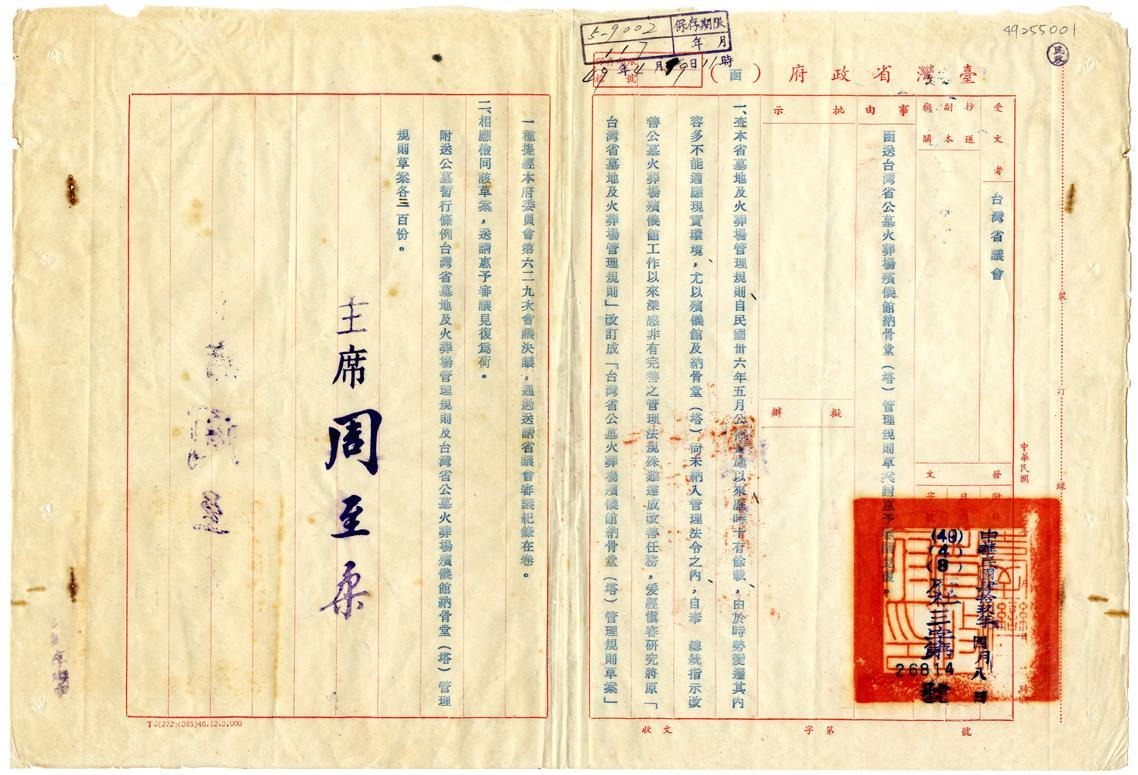 49255001
民政
5-9002
保存期限
117
年 月
49年4月19日11時
臺灣省政府（函）
受文者
台灣省議會
抄送
副本
機關
事由
批示
擬辦
函送台灣省公墓火葬場殯儀館納骨堂（塔）管理規則草案請惠予
一、查本省墓地及火葬場管理規則自民國卅六年五月公
以來歷時十有餘載，由於時勢變遷其內
容多不能適應現實環境，尤以殯儀館及納骨堂（塔）尚未納入管理法令之內，自奉　總統指示改
善公墓火葬場殯儀館工作以來深感非有完善之管理法規殊難達成改善任務，爰經慎審研究將原「
台灣省墓地及火葬場管理規則」改訂成「台灣省公墓火葬場殯儀館納骨堂（塔）管理規則草案」
一種提經本府委員會第六二九次會議決議，通過送請省議會審議紀錄在卷。
二、相應檢同該草案，送請惠予審議見復爲荷。
附送公墓暫行條例台灣省墓地及火葬場管理規則及台灣省公墓火葬場殯儀館納骨堂（塔）管理
規則草案各三百份。
主席 周至柔
中華民國
中華民國肆拾玖年四月八日
(49)
(4)
(8)
26814
號
裝
訂
線
收文
字第
號
T3(272×385)48.12.3,000